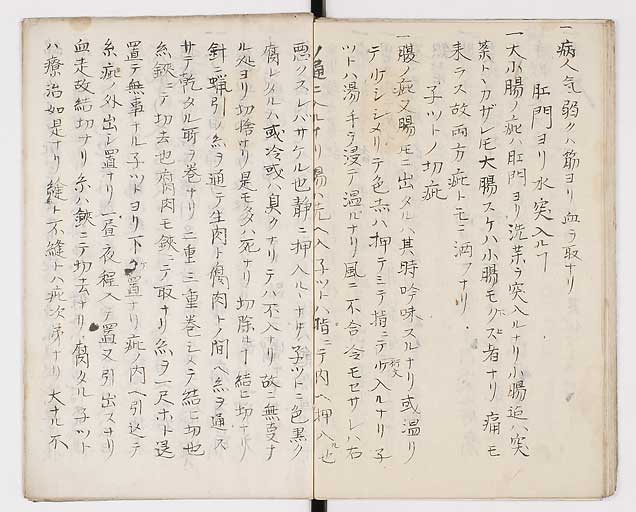 一病人気弱クハ筋ヨリ血ヲ取ナリ
肛門ヨリ水突入ルヿ
一大小腸ノ疵ハ肛門ヨリ洗薬ヲ突入ルナリ小腸迠ハ突
薬トヽカザレ𪜈大腸スケハ小腸モクス者ナリ痛モ
来ラス故両方疵トモニ洒フナリ
子ツトノ切疵
一腹ノ疵ヌ腸モニ出タルハ其時吟味スルナリ或温リ
テ少シシメリテ色赤ハ押テミテ指ニテ少入ルナリ子
ツトハ湯ニ手ヲ浸テ温ルナリ風ニ不合冷モセサレハ右
ノ通ニ入ルナリ腸ハ先ヘ入子ツトハ指ニテ内ヘ押入ル也
悪クスレバサケル也静ニ押入ルヽナリ子ツトニ色黒ク
腐レタルハ或冷或ハ臭クナリテハ不入ナリ故ニ無事ナ
ル処ヨリ切捨ナリ是モ多クハ死ナリ切除ルヿ結ヒ切ナリ
針ニ蝋引ノ糸ヲ通テ生肉ト腐肉トノ間ヘ糸ヲ通ス
サテ乾タル所ヲ巻ナリ二重三重巻シメテ結ヒ切也
糸鋏ニテ切去也腐肉モ鋏ニテ取ナリ糸ヲ一尺ホト退
置テ無事ナル子ツトヨリ下ケ置ナリ疵ノ内ヘ引込テ
糸疵ノ外出シ置ナリ一昼夜程入テ置又引出スナリ
血走故結切ナリ糸ハ鋏ニテ切去ナリ腐タル子ツト
ハ療治如是ナリ縫ト不縫トハ疵次第ナリ大ナル不